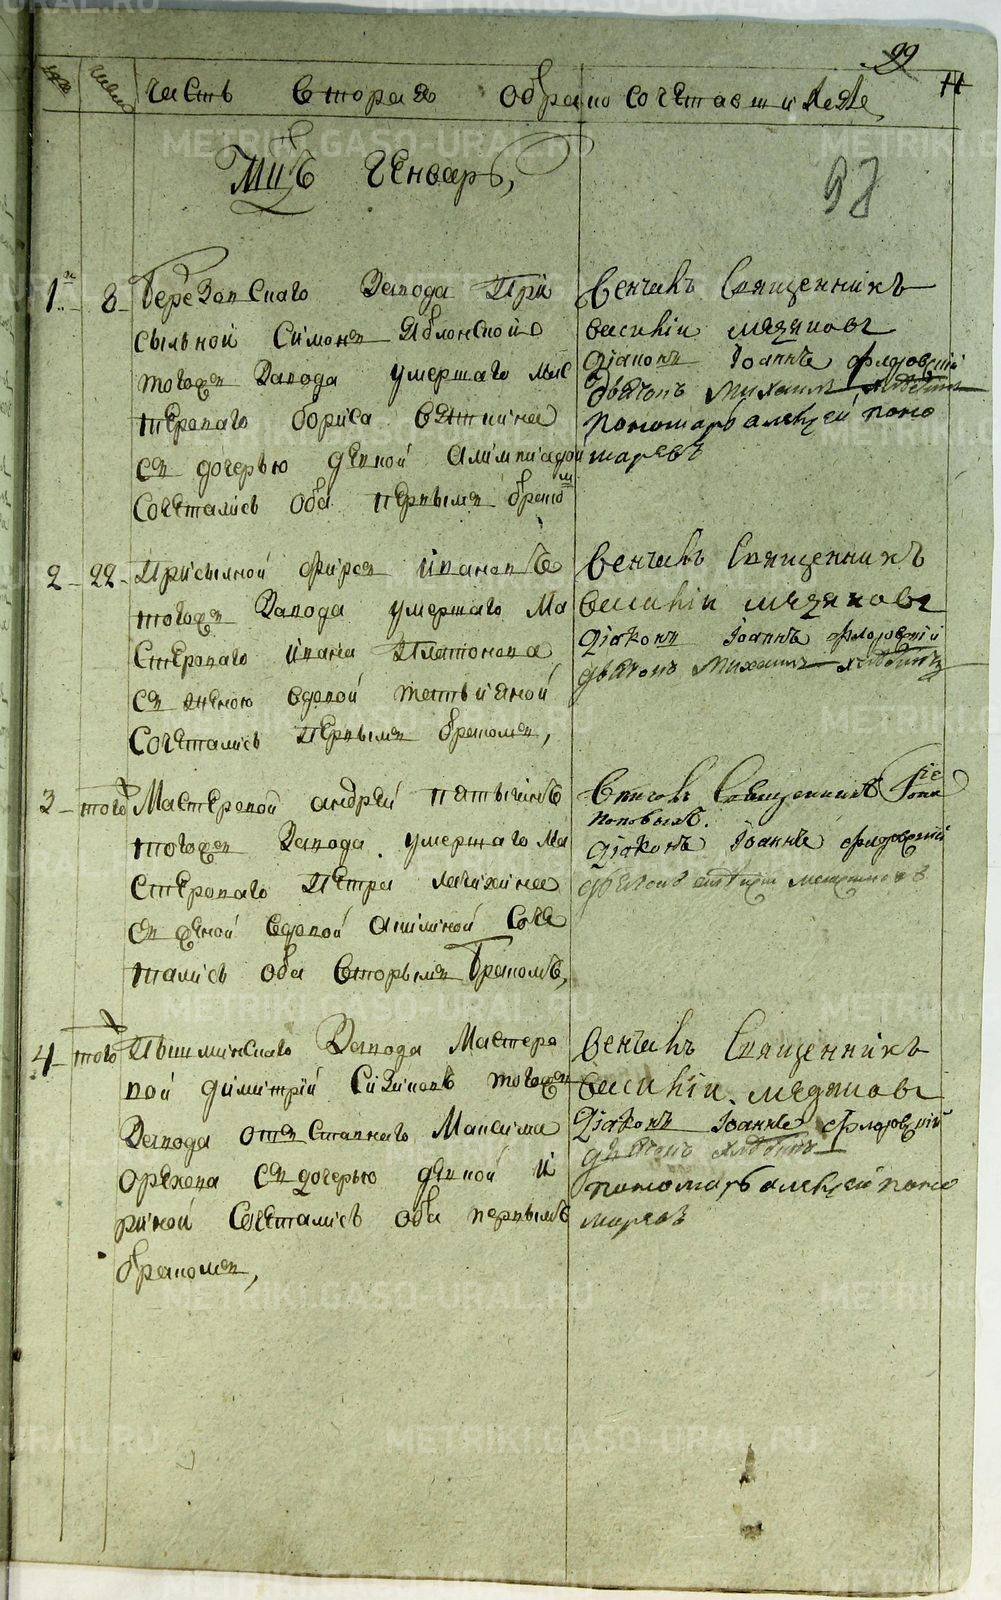 99
11
98
часть вторая о бракосочетавшихся
Мцъ генварь,
1й 8 Березовскаго завода При
сыльной Симонъ Яблонской
тогожъ завода умершаго мас
тероваго бориса
съ дочерью девкой Алимпиадой
сочетались оба первымъ бракомъ
венчалъ Священникъ
василій мудяковъ
діаконъ Іоаннъ флоровскій
дьячокъ Михаилъ хлебинъ
пономарь алексей поно
маревъ
2 22 Присылной фирсъ ивановъ
тогожъ завода умершаго Ма
стероваго ивана Платонова
съ женою вдовой татьяной
сочетались первымъ бракомъ,
венчалъ Священникъ
василій мудяковъ
діаконъ Іоаннъ флоровскій
дьячокъ Михаилъ хлебинъ
3 того Мастеровой андрей пятыгинъ
тогожъ завода умершаго Ма
стероваго Петра
съ женой вдовой Акилиной соче
тались оба вторымъ бракомъ,
венчалъ Священникъ
поповыхъ.
діаконъ Іоаннъ флоровскій
4 того Пышминскаго завода Мастеро
вой димитрій Сизиковъ тогожъ
завода отъставнаго Максима
орехова съ дочерью девкой И
риной сочетались оба первымъ
бракомъ,
венчалъ Священникъ
василій мудяковъ
діаконъ Іоаннъ флоровскій
дьячокъ хлебинъ
пономарь алексей поно
маревъ
METRIKI.GASO-URAL.RU